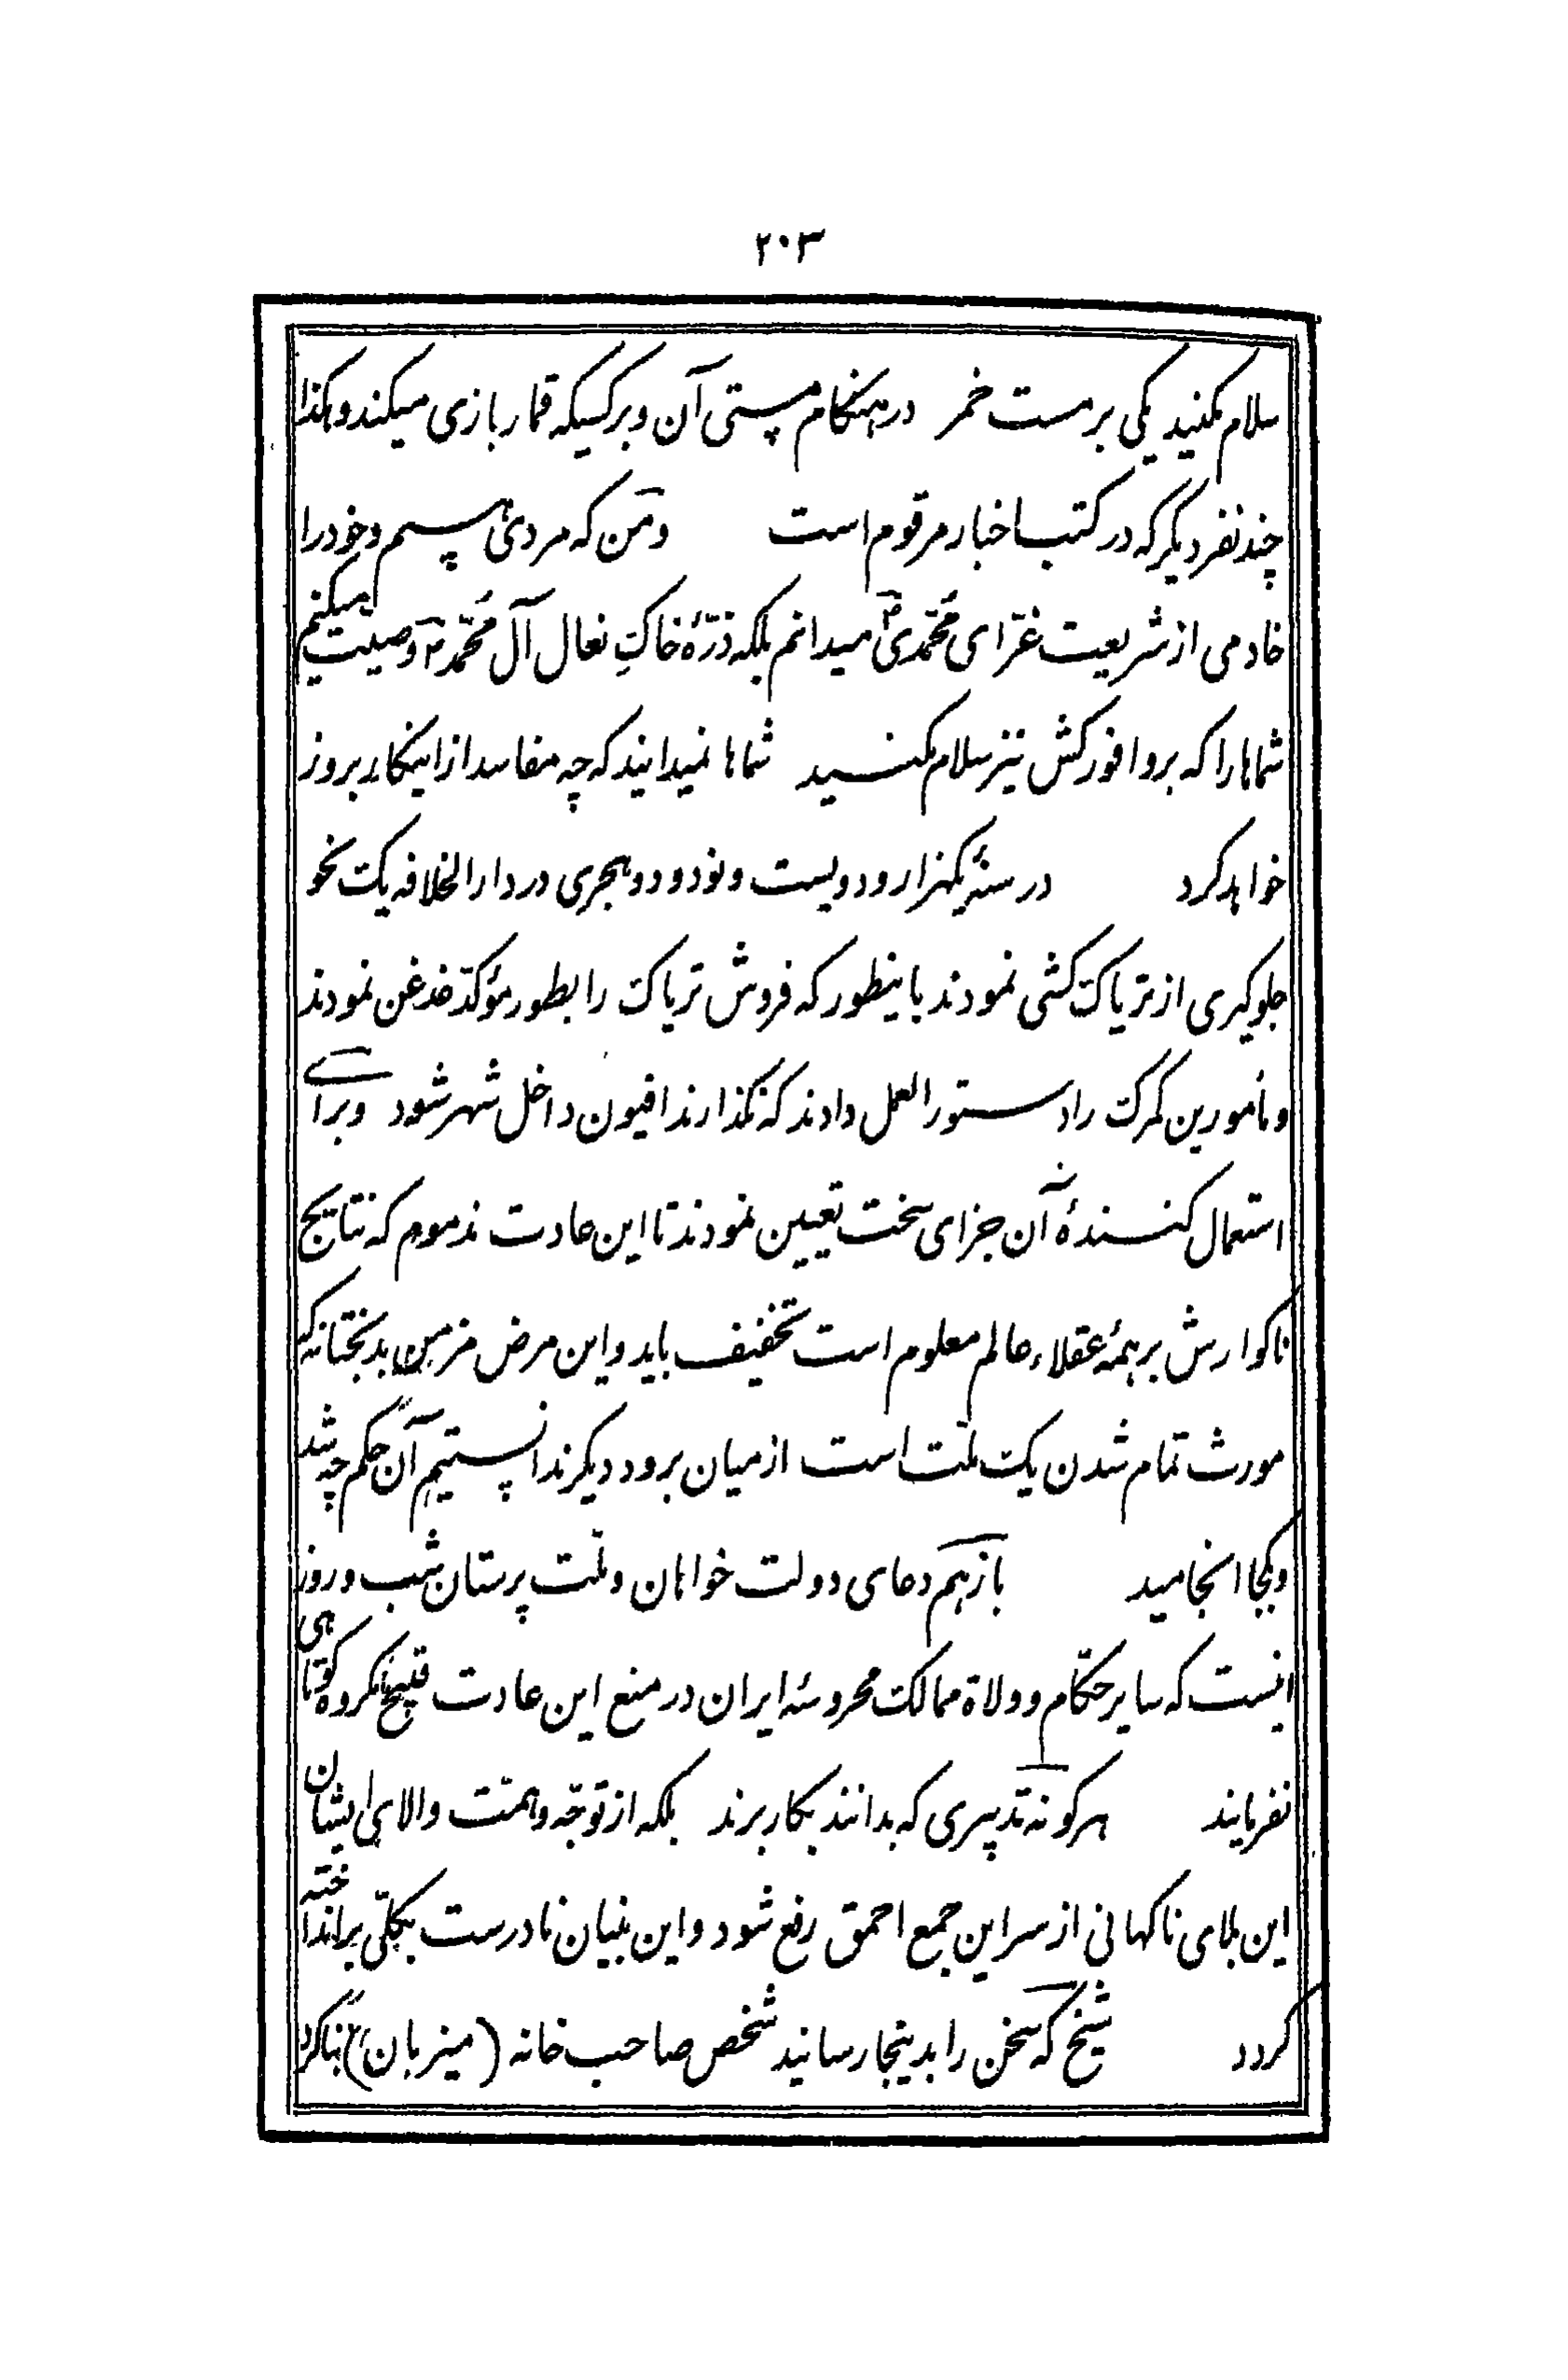 ۲۰۳
سلام مکنید یکی بر مست خمر در هنکام مستی آن و بر کسیکه قمار بازی میکند و هکذا
چند نفر دیگر که در کتب اخبار مرقوم است و من که مردی هستم و خود را
خادمی از شریعت غرّای محمّدی ص میدانم بلکه ذرّهٔ خاک نعال آل محمّد م وصیّت میکنم
شماها را که بر وافور کش نیز سلام مکنید شماها نمیدانید که چه مفاسد از اینکار بروز
خواهد کرد در سنهٔ یکهزار و دویست و نود و دو هجری در دار الخلافه یک نحو
جلوکیری از تریاک کشی نمودند باینطور که فروش تریاک را بطور مؤکّد قدغن نمودند
و مأمورین کمرک را دستور العمل دادند که نکذارند افیون داخل شهر شود و برای
استعمال کنندهٔ آن جزای سخت تعیین نمودند تا این عادت مذموم که نتایج
ناکوارش بر همهٔ عقلاء عالم معلوم است تخفیف یابد و این مرض مزمن بدبختانه که
مورث تمام شدن یک ملّت است از میان برود دیکر ندانستیم آن حکم چه شد
و بکجا انجامید باز هم دعای دولت خواهان و ملّت پرستان شب و روز
اینست که سایر حکّام و ولاة ممالک محروسهٔ ایران در منع این عادت قبیح مکروه کوتاهی
نفرمایند هر کونه تدبیری که بدانند بکار برند بلکه از توجّه و همّت والای ایشان
این بلای ناکهانی از سر این جمع احمق رفع شود و این بنیان نادرست بکلّی برانداخته
کردد شیخ که سخن را بدینجا رسانید شخص صاحب خانه (میزبان) بنا کرد